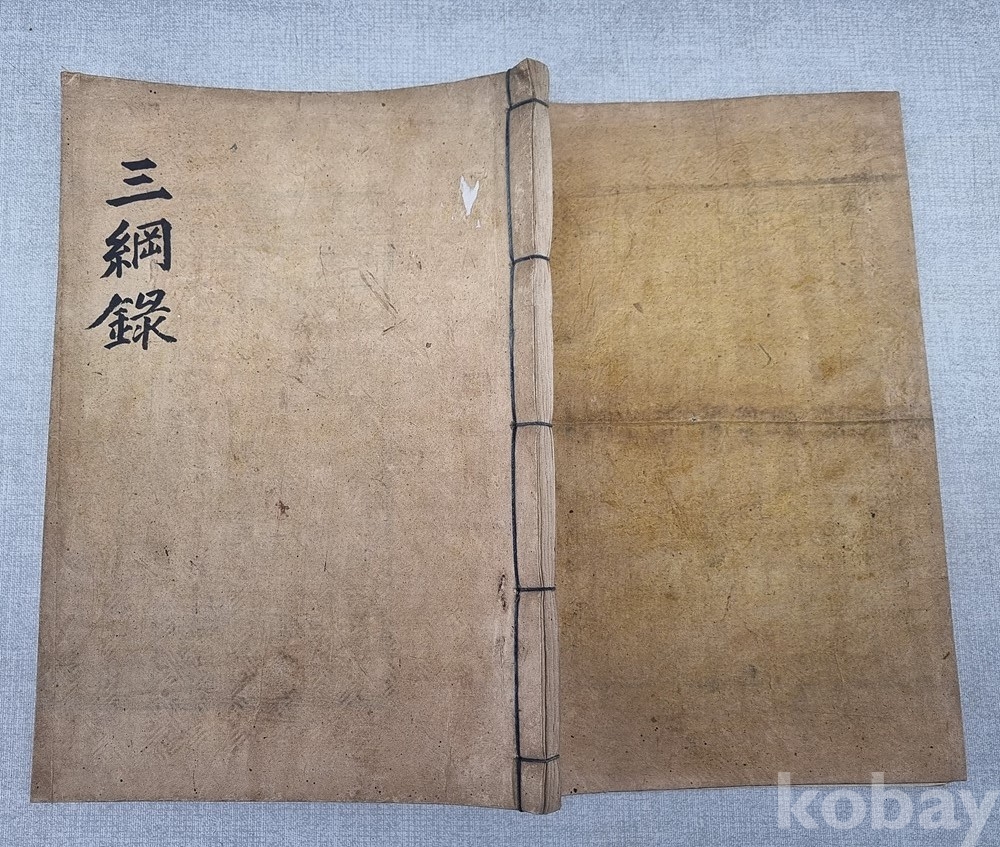 三綱錄
kobay